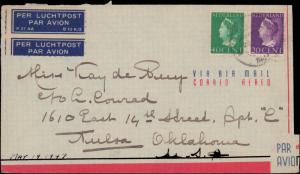 PER LUCHTPOST
PAR AVION
PER LUCHTPOST
PAR AVION
NEDERLAND
40 CENT
NEDERLAND
20 CENT
VIA AIR MAIL
CORREO AEREO
Miss Kay de Bruy
c/o L. Conrad
1610 East 14th Street, Apt. "E"
Tulsa Oklahoma
U.S.A.
MAY 19 1947
PAR
AVION